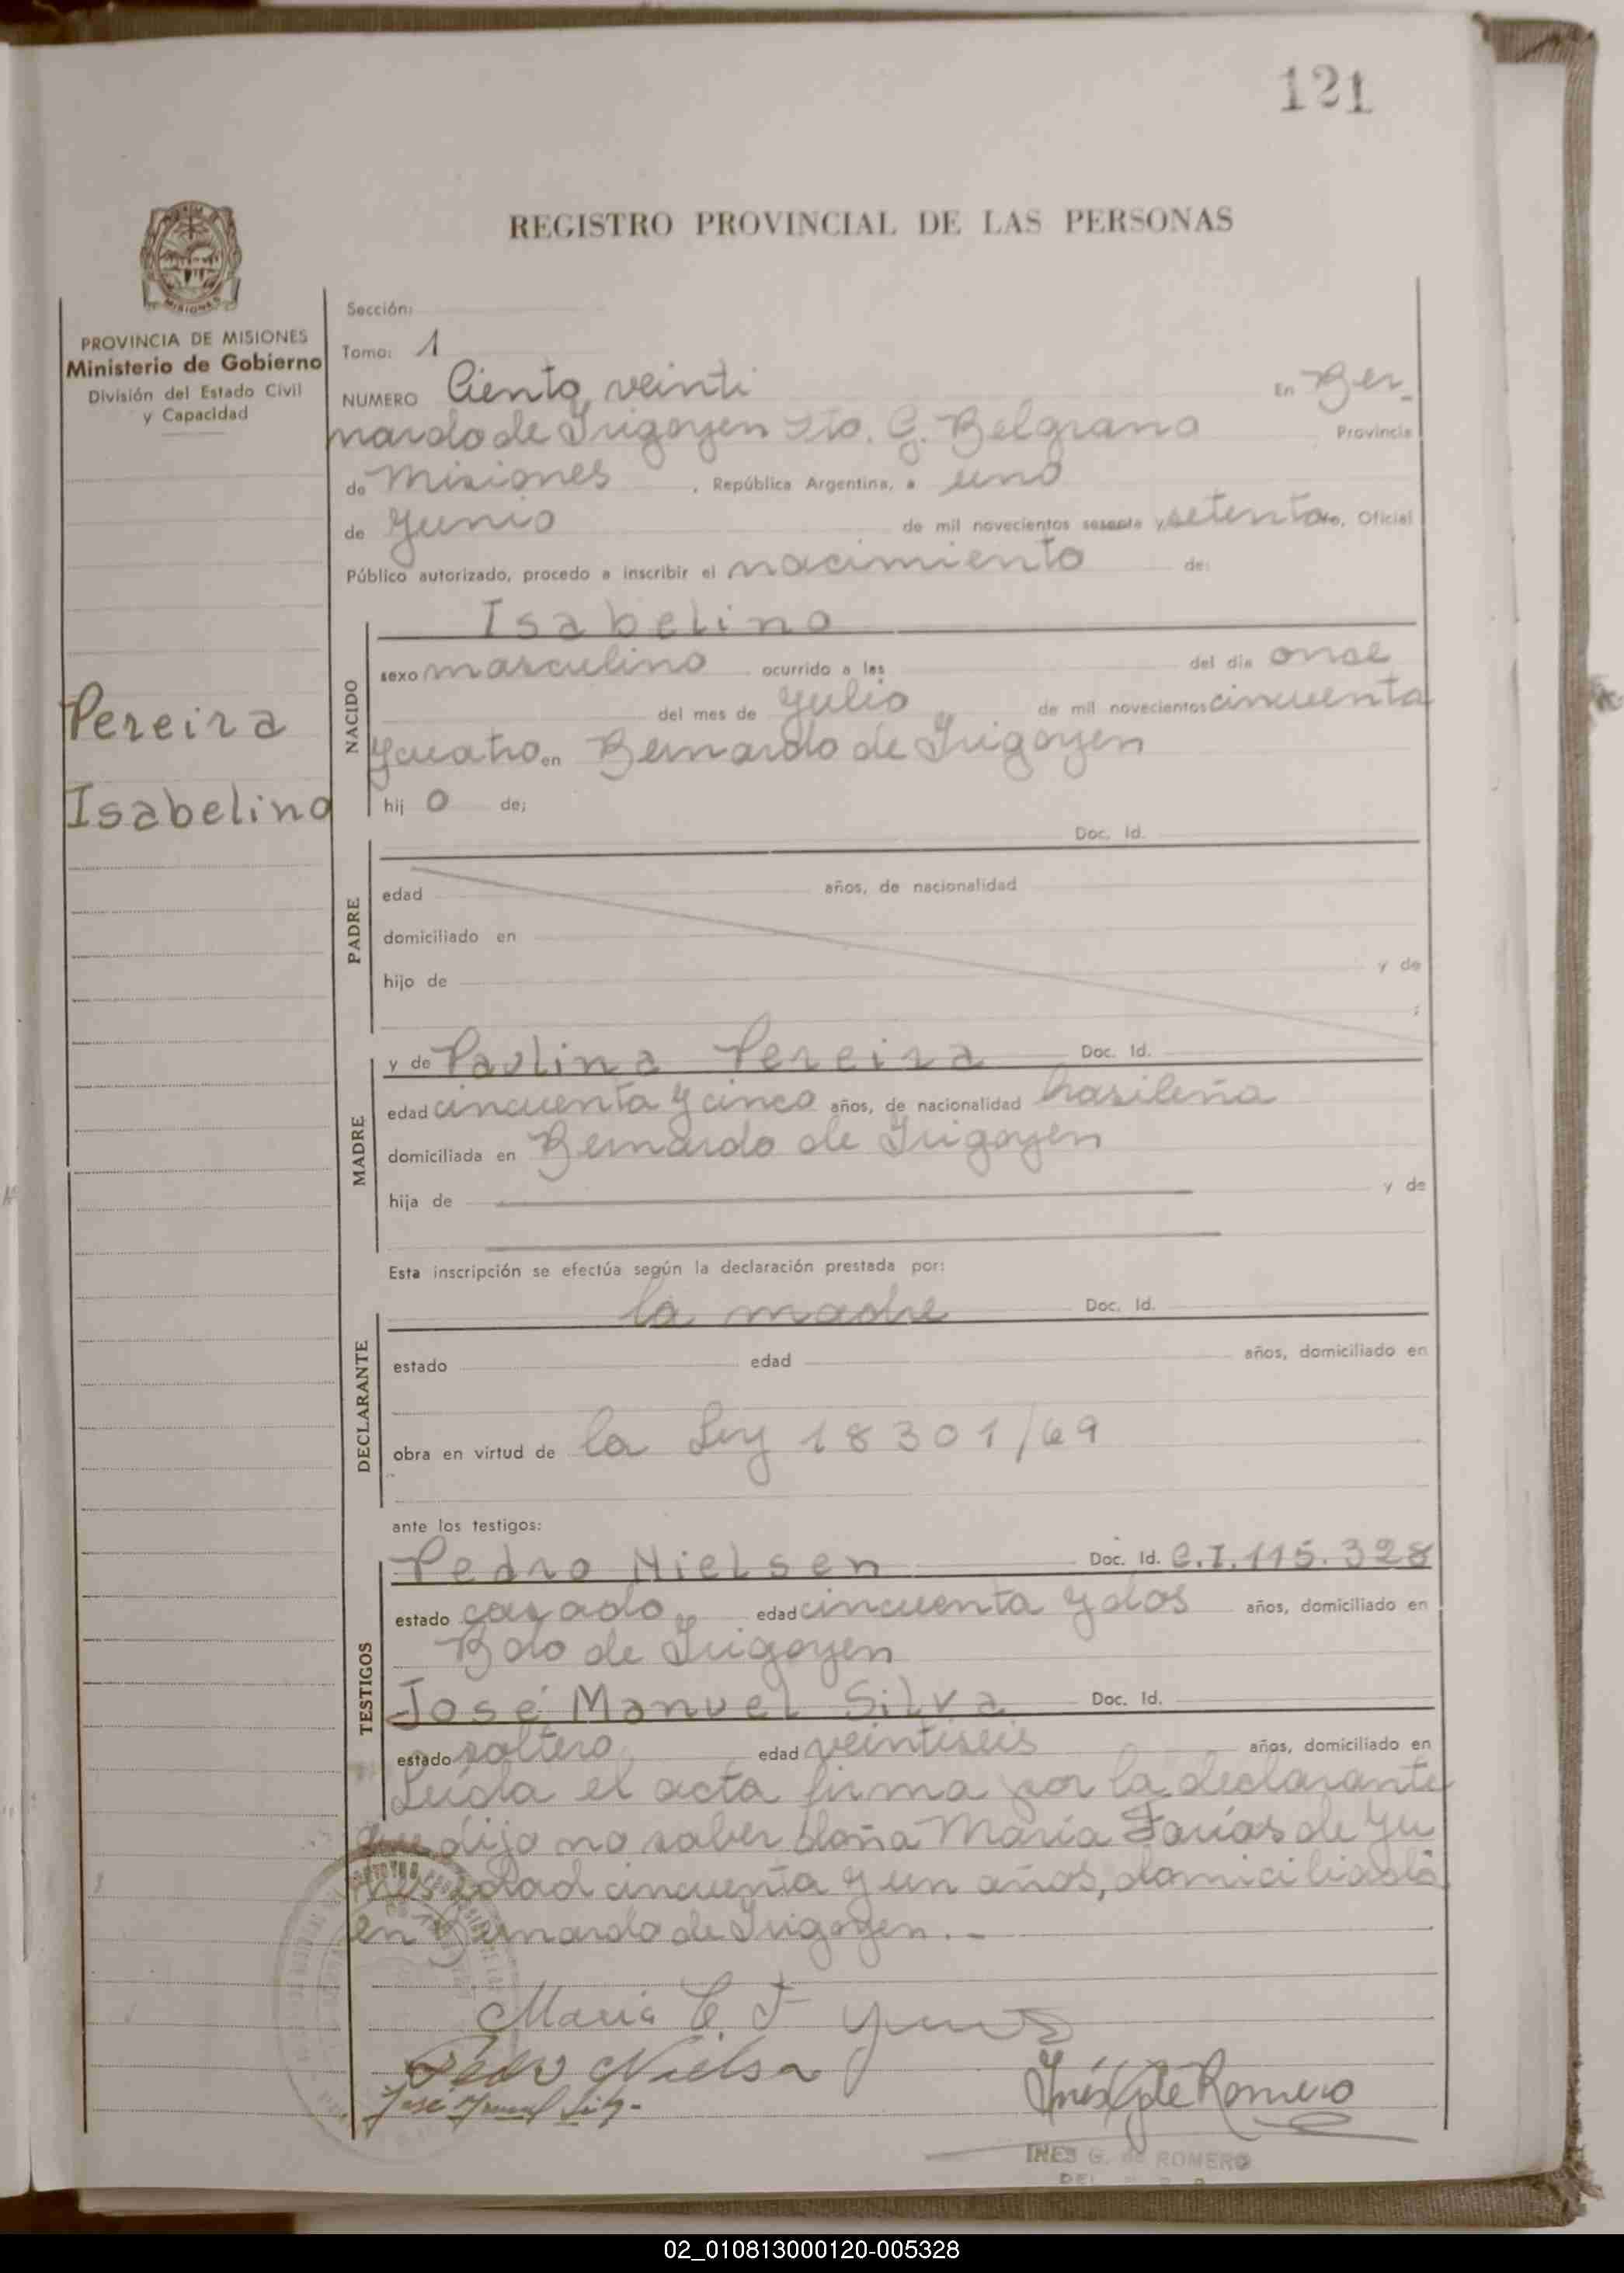 121
REGISTRO PROVINCIAL DE LAS PERSONAS
MISIONES
PROVINCIA DE MISIONES
Ministerio de Gobierno
División del Estado Civil
y Capacidad
Pereira
Isabelino
Sección:
Tomo: 1
NUMERO Ciento veinti En Ber_
nardo de Irigoyen Dto. G. Belgrano Provincia
de Misiones , República Argentina, a uno
de Junio de mil novecientos sesenta y setenta, Oficial
Público autorizado, procedo a inscribir el nacimiento de:
NACIDO
Isabelino
sexo masculino ocurrido a las del día once
del mes de Julio de mil novecientos cincuenta
y cuatro en Bernardo de Irigoyen
hij o de;
PADRE
Doc. Id.
edad años, de nacionalidad
domiciliado en
hijo de y de
;
MADRE
y de Paulina Pereira Doc. Id.
edad cincuenta y cinco años, de nacionalidad brasileña
domiciliada en Bernardo de Irigoyen
hija de y de
Esta inscripción se efectúa según la declaración prestada por:
DECLARANTE
la madre Doc. Id.
estado edad años, domiciliado en
obra en virtud de la Ley 18301/69
ante los testigos:
TESTIGOS
Pedro Nielsen Doc. Id. C.I. 115.328
estado casado edad cincuenta y dos años, domiciliado en
Bdo de Irigoyen
José Manuel Silva Doc. Id.
estado soltero edad veintiseis años, domiciliado en
Leída el acta firma por la declarante
que dijo no saber doña María Farías de Yu
nes edad cincuenta y un años, domiciliada
en Bernardo de Irigoyen.-
Maria C. F Yunes
Pedro Nielsen
José Manuel Silva
Inés G de Romero
INES G. de ROMERO
02_010813000120-005328